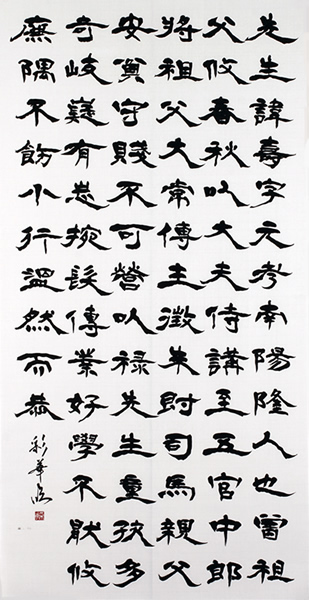 先生諱壽字元考南陽隆人也曾祖
父攸春秋以大夫侍講至五官中郎
將祖父大常博士徵朱爵司馬親父
安貧守賤不可營以祿先生童孩多
奇岐嶷有志捥髮傳業好學不厭攸
廉隅不飭小行溫然而恭
彩華臨